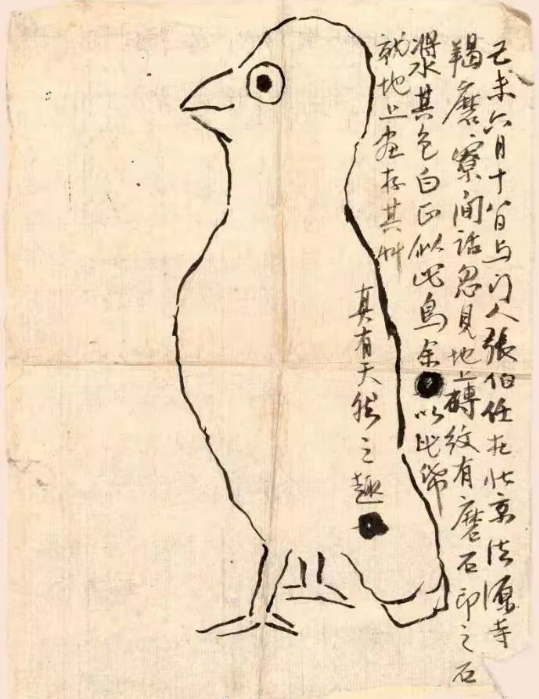 己未六月十八日与門人張伯任在北京法源寺
羯磨寮間話忽見地上磚紋有磨石印之石
漿其色白正似此鳥余以此紙
就地上画存其艸
真有天然之趣